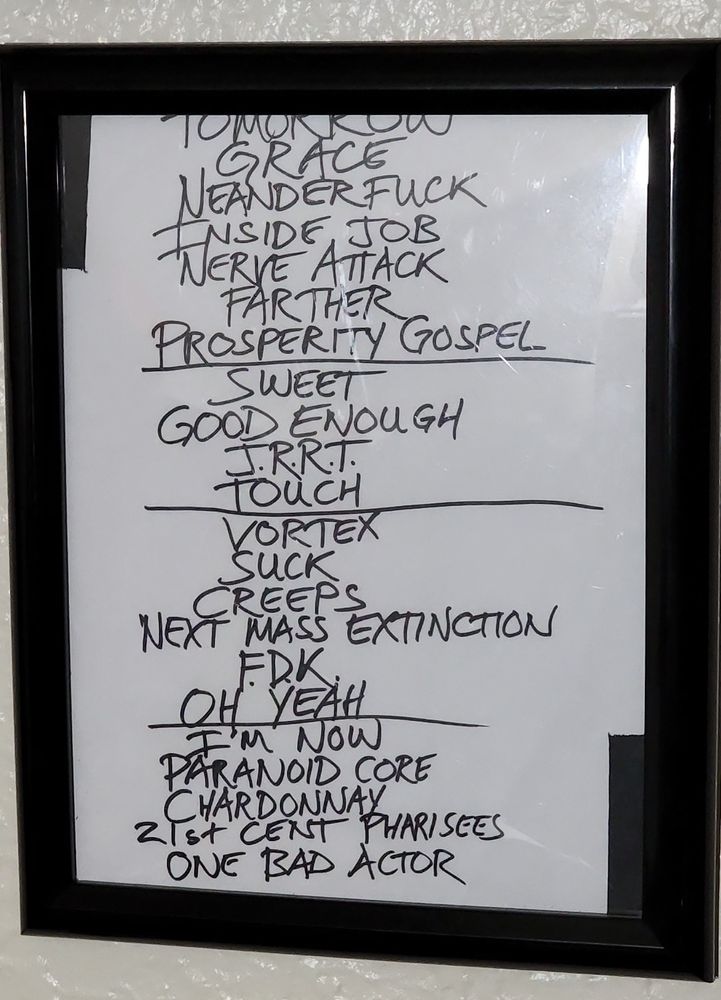 TOMORROW
GRACE
NEANDERFUCK
INSIDE JOB
NERVE ATTACK
FARTHER
PROSPERITY GOSPEL
SWEET
GOOD ENOUGH
J.R.R.T.
TOUCH
VORTEX
SUCK
CREEPS
NEXT MASS EXTINCTION
F.D.K.
OH YEAH
I'M NOW
PARANOID CORE
CHARDONNAY
21st CENT PHARISEES
ONE BAD ACTOR